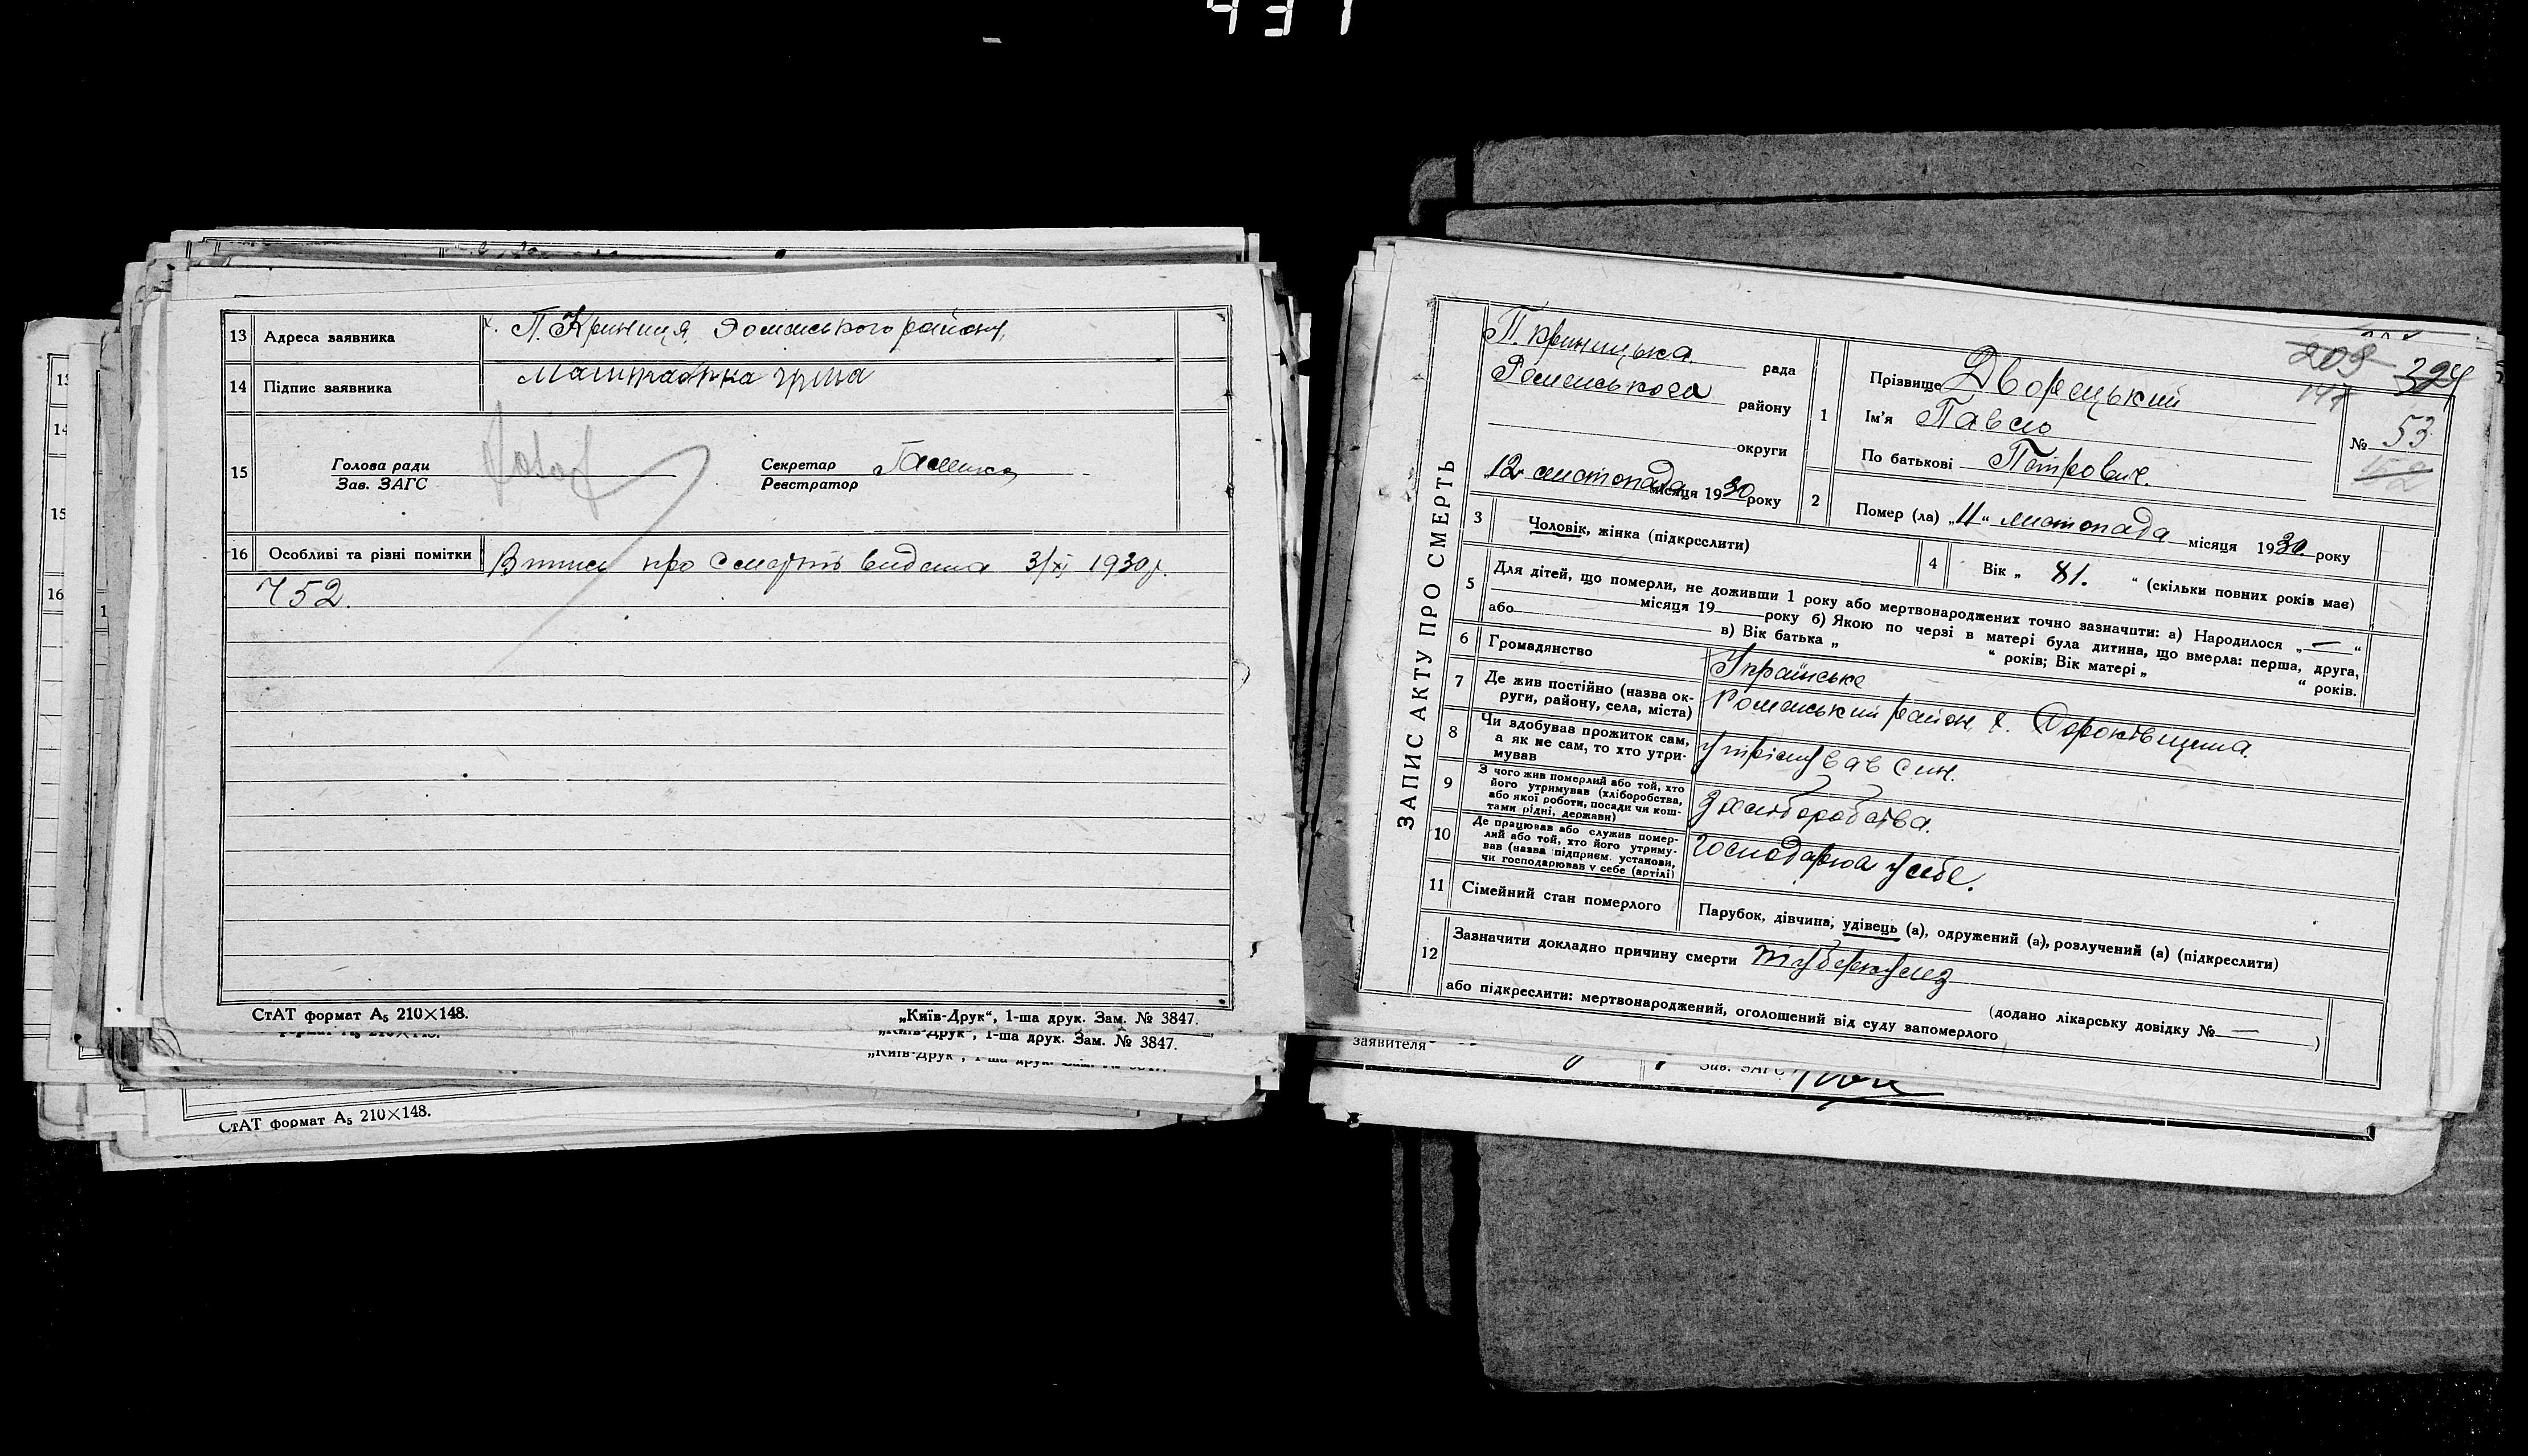 437
13 Адреса заявника х. П. Криниця, Роменського району,
14 Підпис заявника
15 Голова ради
Зав. ЗАГС
Секретар
Реєстратор
16 Особливі та різні помітки Виписа про смерть видана 3/XI 1930 р.
752.
СтАТ формат А5 210×148.
„Київ-Друк“, 1-ша друк. Зам. № 3847.
„Київ-Друк“, 1-ша друк. Зам. № 3847.
СтАТ формат А5 210×148.
ЗАПИС АКТУ ПРО СМЕРТЬ
П. Криницька рада
Роменського району
округи
12 листопада місяця 1930 року
1 Прізвище Дворецький
Ім'я Павло
По батькові Петрович.
209 324
147
№ 53
152
2 Помер (ла) „11“ листопада місяця 1930 року
3 Чоловік, жінка (підкреслити)
4 Вік „ 81. “ (скільки повних років має)
5 Для дітей, що померли, не доживши 1 року або мертвонароджених точно зазначити: а) Народилося „—“
місяця 19 року б) Якою по черзі в матері була дитина, що вмерла: перша, друга,
або в) Вік батька „ “ років; Вік матері „ “ років.
6 Громадянство Українське
7 Де жив постійно (назва ок-
руги, району, села, міста) Роменський район, х.
8 Чи здобував прожиток сам,
а як не сам, то хто утри-
мував утрімував син.
9 З чого жив померлий або той, хто
його утримував (хліборобства,
або якої роботи, посади чи кош-
тами рідні, держави) З хліборобства.
10 Де працював або служив помер-
лий або той, хто його утриму-
вав (назва підприєм. установи,
чи господарював у себе (артілі) Господарюа у себе.
11 Сімейний стан померлого Парубок, дівчина, удівець (а), одружений (а), розлучений (а) (підкреслити)
12 Зазначити докладно причину смерти туберкульз
(додано лікарську довідку № — )
або підкреслити: мертвонароджений, оголошений від суду запомерлого
заявителя
Зав. ЗАГС